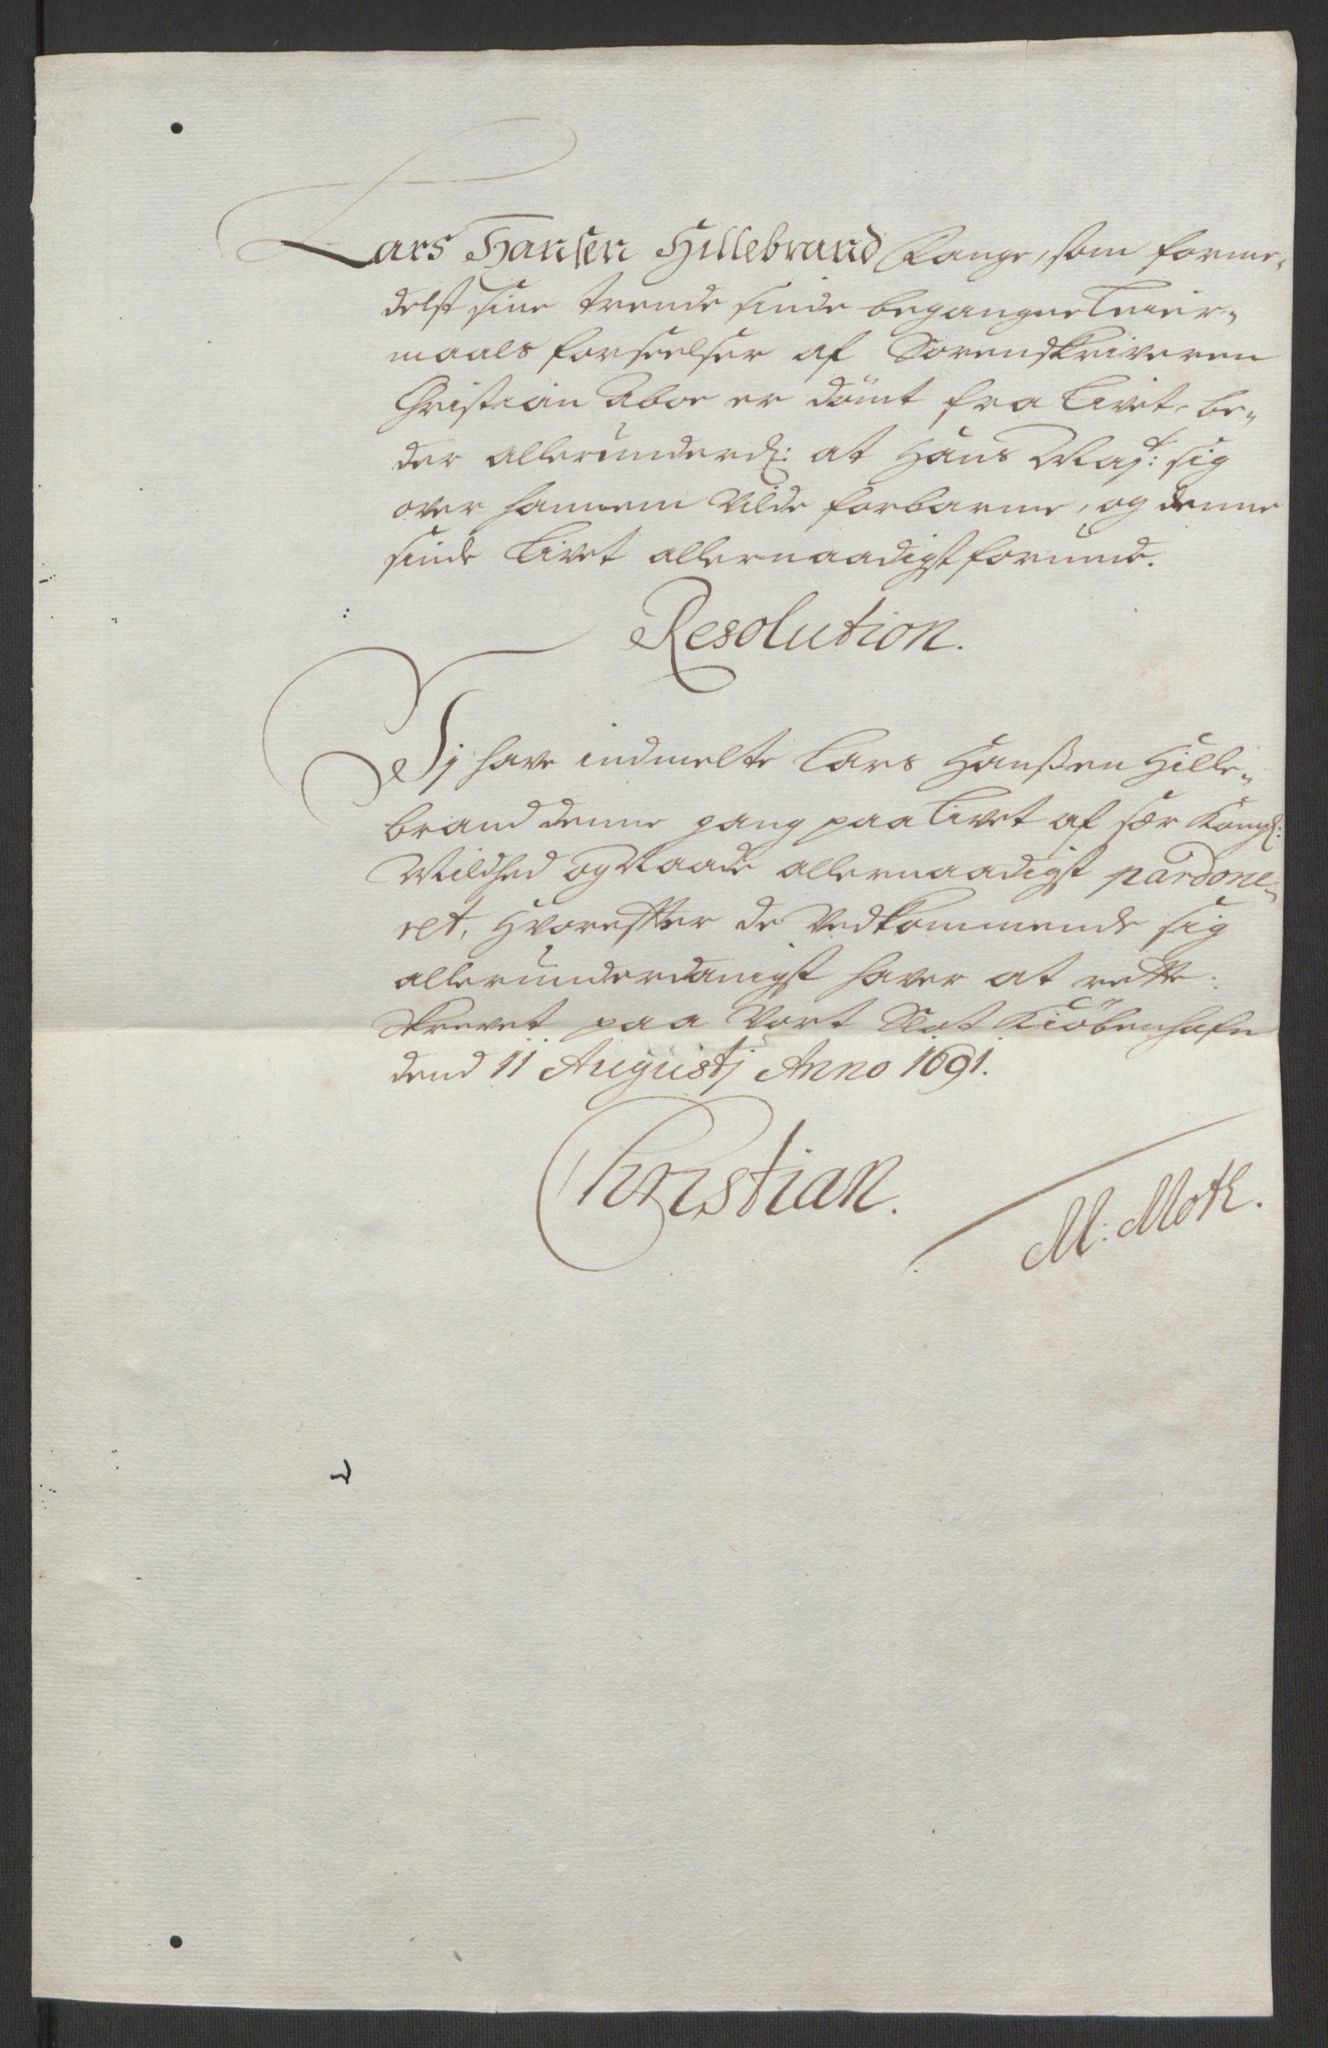 Lars Hansen Hillebrand Fange, som forme-
delst sine trende sinde begangne Leier-
maals forseelser af Sorenskriveren
Christian Aboe er dömt fra Livet, be-
der allerunderd: at Hans Maj.t: sig
over hannem vilde forbarme, og denne
sinde Livet allernaadigst forunde.
Resolution.
Vj have indmelte Lars Hanßen Hille-
brand denne gang paa Livet af sær Kongl:
Mildhed og Naade allernaadigst pardone-
ret, Hvorefter de Vedkommende sig
allerunderdanigst haver at rette.
Skrevet paa Vort Slot Kiöbenhafn
dend 11 Augustj Anno 1691.
Christian.
M: Moth.